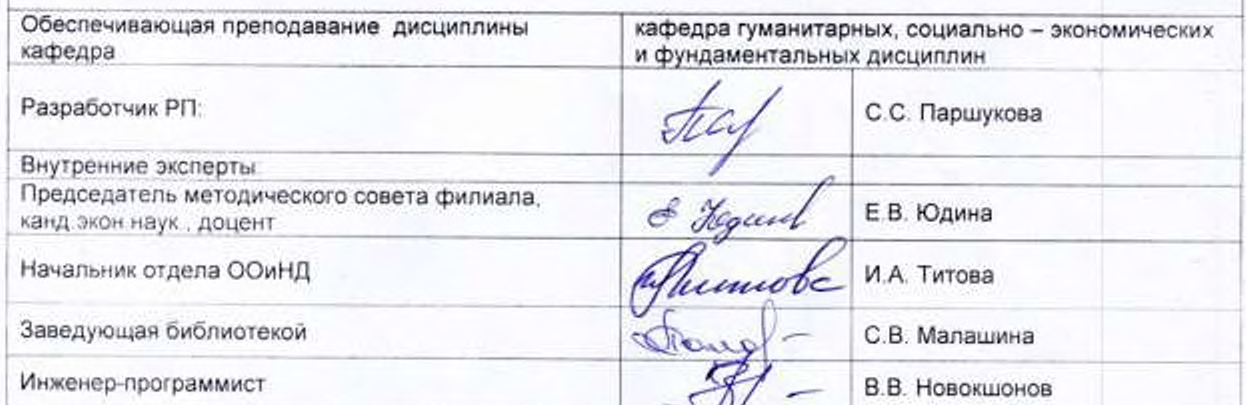 Обеспечивающая преподавание дисциплины
кафедра
кафедра гуманитарных, социально – экономических
и фундаментальных дисциплин
Разработчик РП:
С.С. Паршукова
Внутренние эксперты:
Председатель методического совета филиала,
канд.экон.наук , доцент
Е.В. Юдина
Начальник отдела ООиНД
И.А. Титова
Заведующая библиотекой
С.В. Малашина
Инженер-программист
В.В. Новокшонов